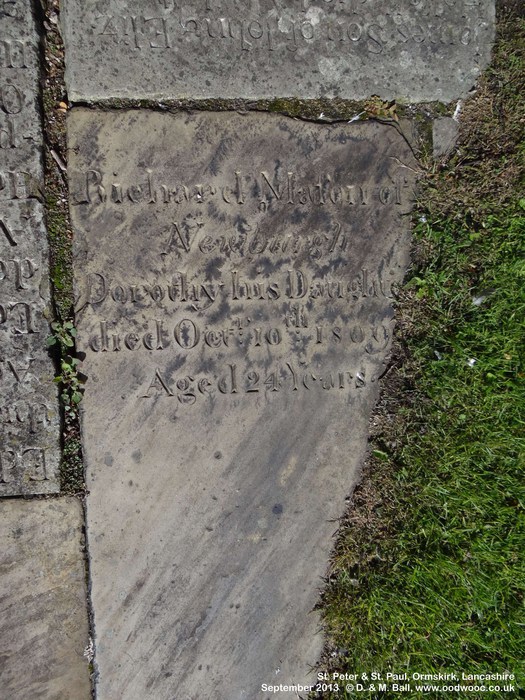 Son of John & Eliz
Richard Maton of
Newburgh
Dorothy his Daughte
died Octr. 10th. 1809
Aged 24 Years
St. Peter & St. Paul, Ormskirk, Lancashire
September 2013 © D. & M. Ball, www.oodwooc.co.uk